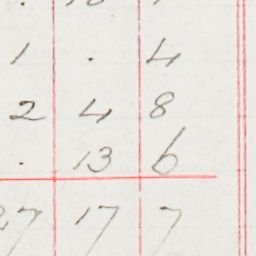 1 . 4
2 4 8
. 13 6
27 17 7